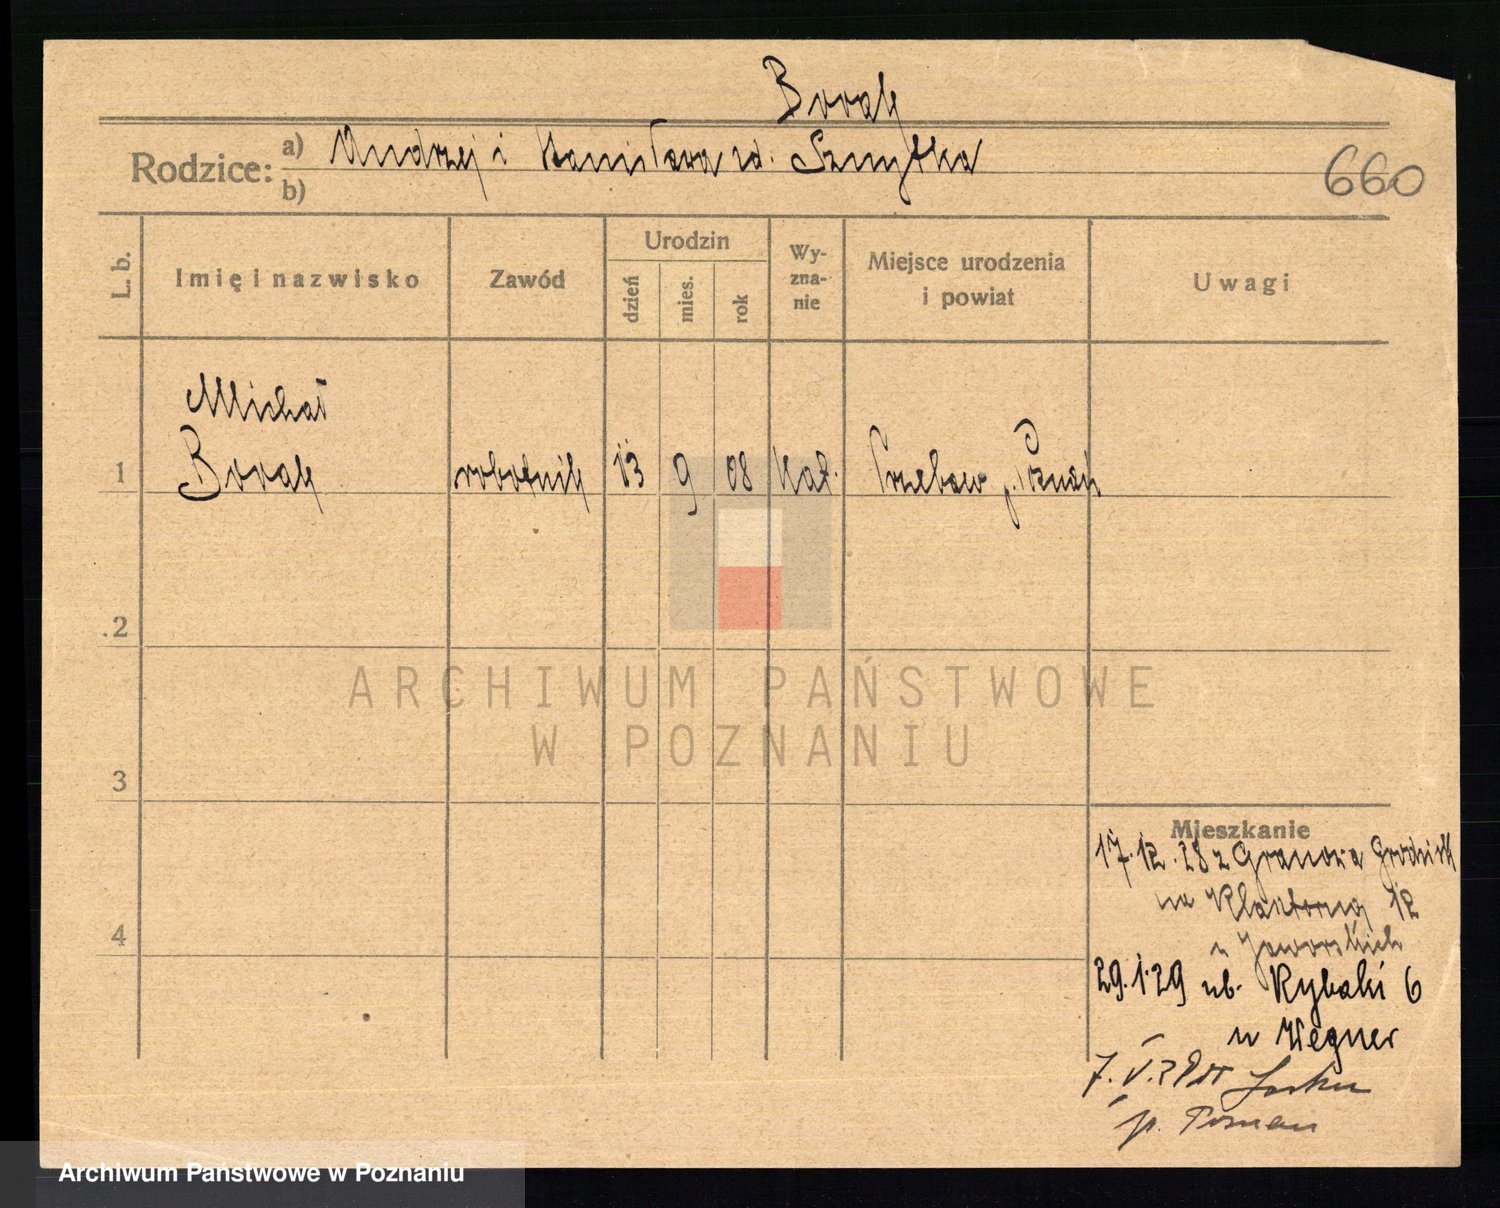 Borak
Rodzice: a) Andrzej i Stanisława zd. Szmytka
b)
660
L. b.
Imię i nazwisko
Zawód
Urodzin
dzień
mies.
rok
Wy-
zna-
nie
Miejsce urodzenia
i powiat
Uwagi
Michał
1 Borak robotnik 13 9 08 Kat. p. Poznań
2
3
4
Mieszkanie
17.12.28 z Granowa Grodzisk
na 12
u Jaworskich
29.1.29 ub. Rybaki 6
u Wegner
7.V.29
p. Poznań
ARCHIWUM PAŃSTWOWE
W POZNANIU
Archiwum Państwowe w Poznaniu